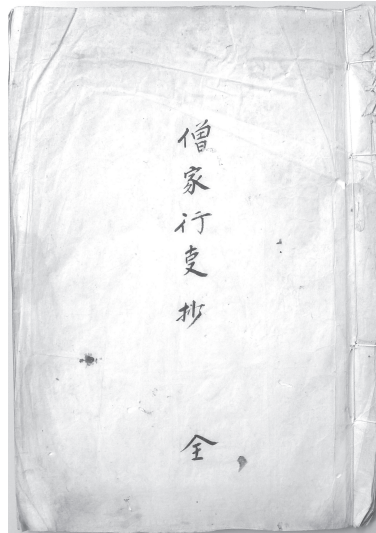 僧家行叓抄 全